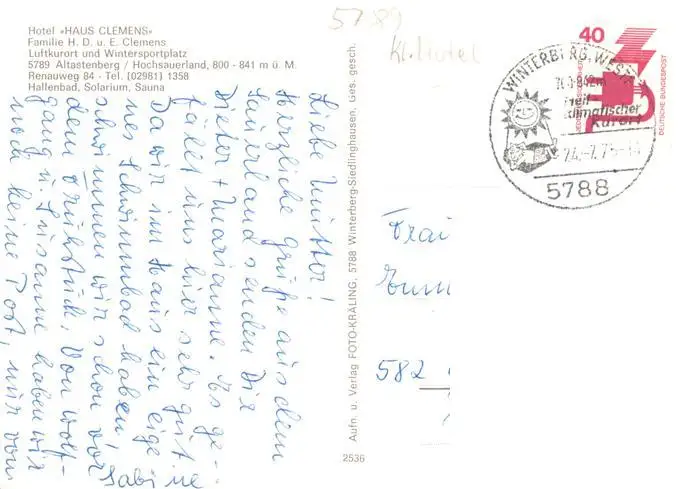 Hotel »HAUS CLEMENS«
Familie H. D. u. E. Clemens
Luftkurort und Wintersportplatz
5789 Altastenberg / Hochsauerland, 800 - 841 m ü. M.
Renauweg 84 - Tel. (02981) 1358
Hallenbad, Solarium, Sauna
5789
kl. Hotel
Liebe Mutter!
Herzliche Grüße aus dem
Sauerland senden Dir
Dieter + Marianne. Es ge-
fällt uns hier sehr gut.
Da wir im Haus ein eige-
nes Schwimmbad haben,
schwimmen wir schon vor
dem Frühstück. Von Wolf-
gang u. Susanne haben wir
noch keine Post, nur von
Sabine
Aufn. u. Verlag FOTO-KRÄLING, 5788 Winterberg-Siedlinghausen, Ges. gesch.
2536
40
DEUTSCHE BUNDESPOST
WINTERBERG, WESTF
heil-
klimatischer
Kurort
5788
Frau
582